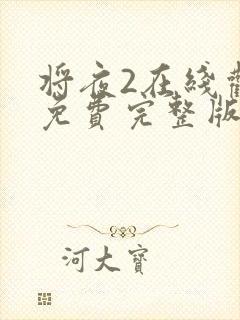 将夜2在线
免费完整版
河大宝